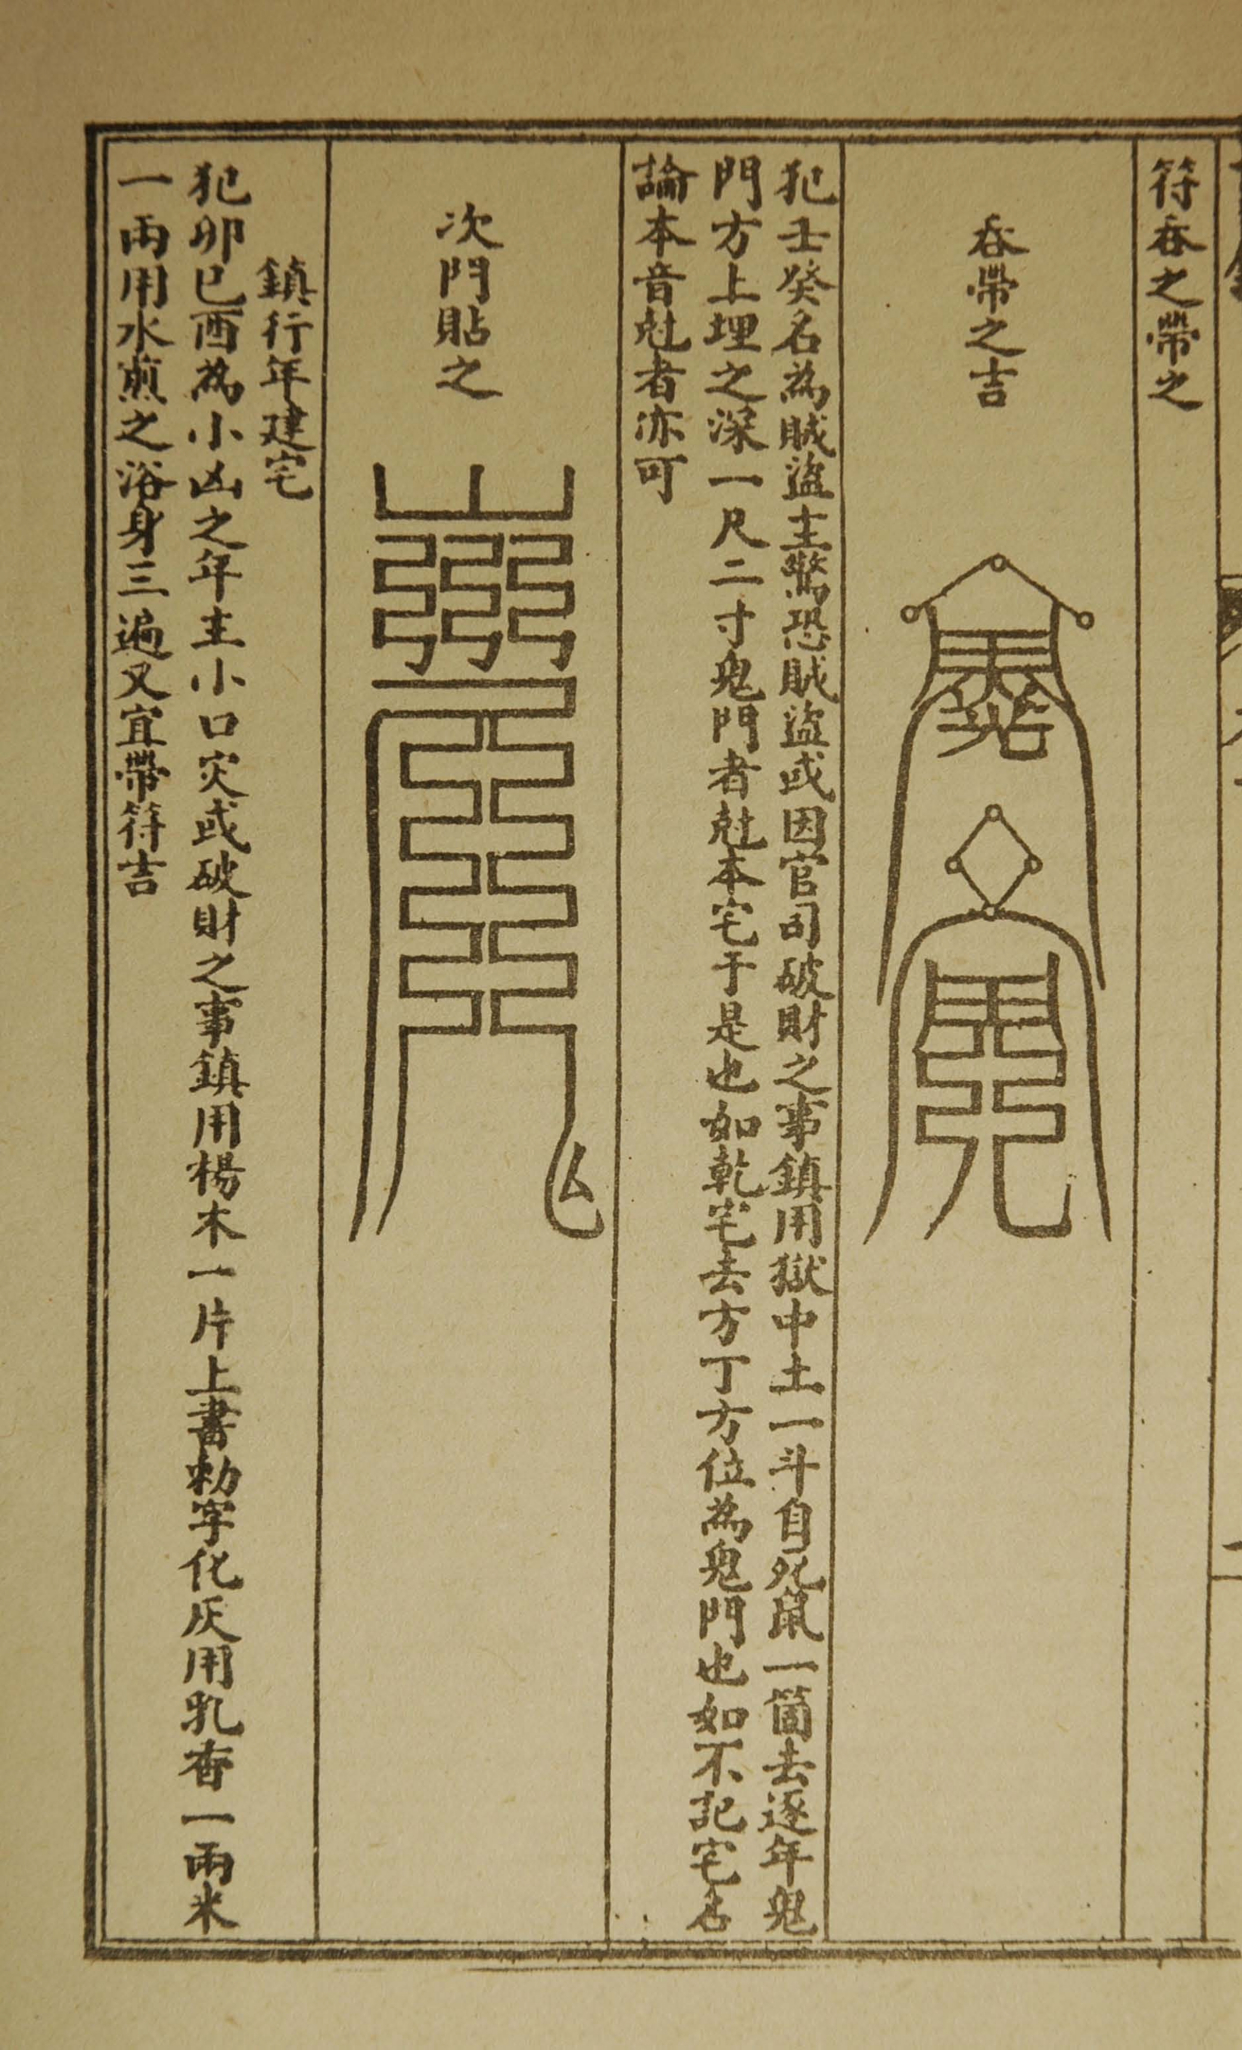 符吞之帶之
吞帶之吉
犯壬癸名為賊盜主驚恐賊盜或因官司破財之事鎮用獄中土一斗自死鼠一箇去逐年鬼
門方上埋之深一尺二寸鬼門者尅本宅于是也如乾宅去方丁方位為鬼門也如不記宅名
論本音尅者亦可
次門貼之
鎮行年建宅
犯卯巳酉為小凶之年主小口灾或破財之事鎮用楊木一片上書勅字化灰用乳香一兩米
一兩用水煎之浴身三遍又宜帶符吉